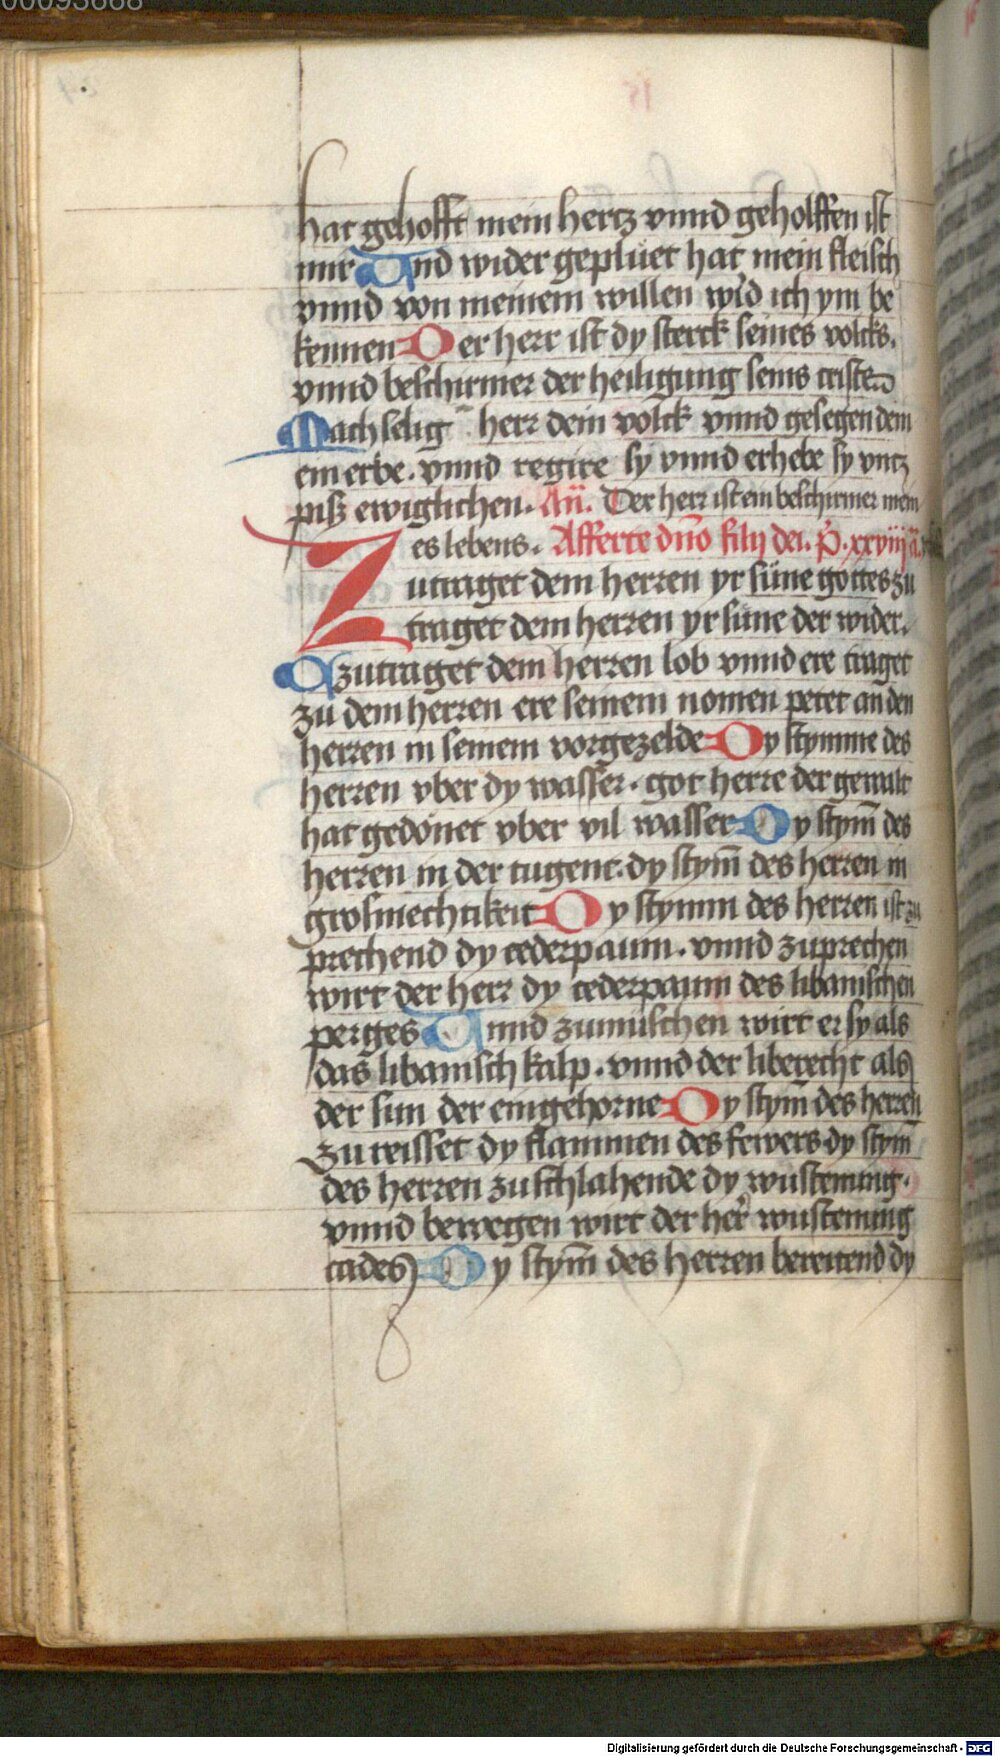 00093668
15
hat gehofft mein hertz vnnd geholffen ist
mir Und wider gepluet hat mein fleisch
vnnd von meinem willen wird ich ym be
kennen Der herr ist dy sterck seines volcks.
vnnd beschirmer der heiligung seins cristen
Mach selig herr dein volck vnnd gesegen dem
ein erbe. vnnd regire sy vnnd erhebe sy vntz
piß ewiglichen. Añ. Der herr ist ein beschirmer mein
es lebens. Afferte dño filij dei. p̃. xxviij
Zutraget dem herren yr süne gottes zu
traget dem herren yr süne der wider.
Ozutraget dem herren lob vnnd ere traget
zu dem herren ere seinem nomen petet an den
herren in seinem vorgezelde Dy stymme des
herren vber dy wasser. got herre der gewalt
hat gedonet vber vil wasser Dy stym̃ des
herren in der tugent. dy stym̃ des herren in
grosmechtikeit Dy stymm des herren ist zu
prechend dy cederpaum. vnnd zuprechen
wirt der herr dy cederpaum des libanischen
perges Unnd zumüschen wirt er sy als
das libanisch kalp. vnnd der liberecht als
der sun der eingehorne Dy stym̃ des herren
zu reisset dy flammen des fewers dy stym̃
des herren zuschlahende dy wustenung.
vnnd bewegen wirt der her̃ wustenung
cades Dy stym̃ des herren bereitend dy
Digitalisierung gefördert durch die Deutsche Forschungsgemeinschaft - DFG